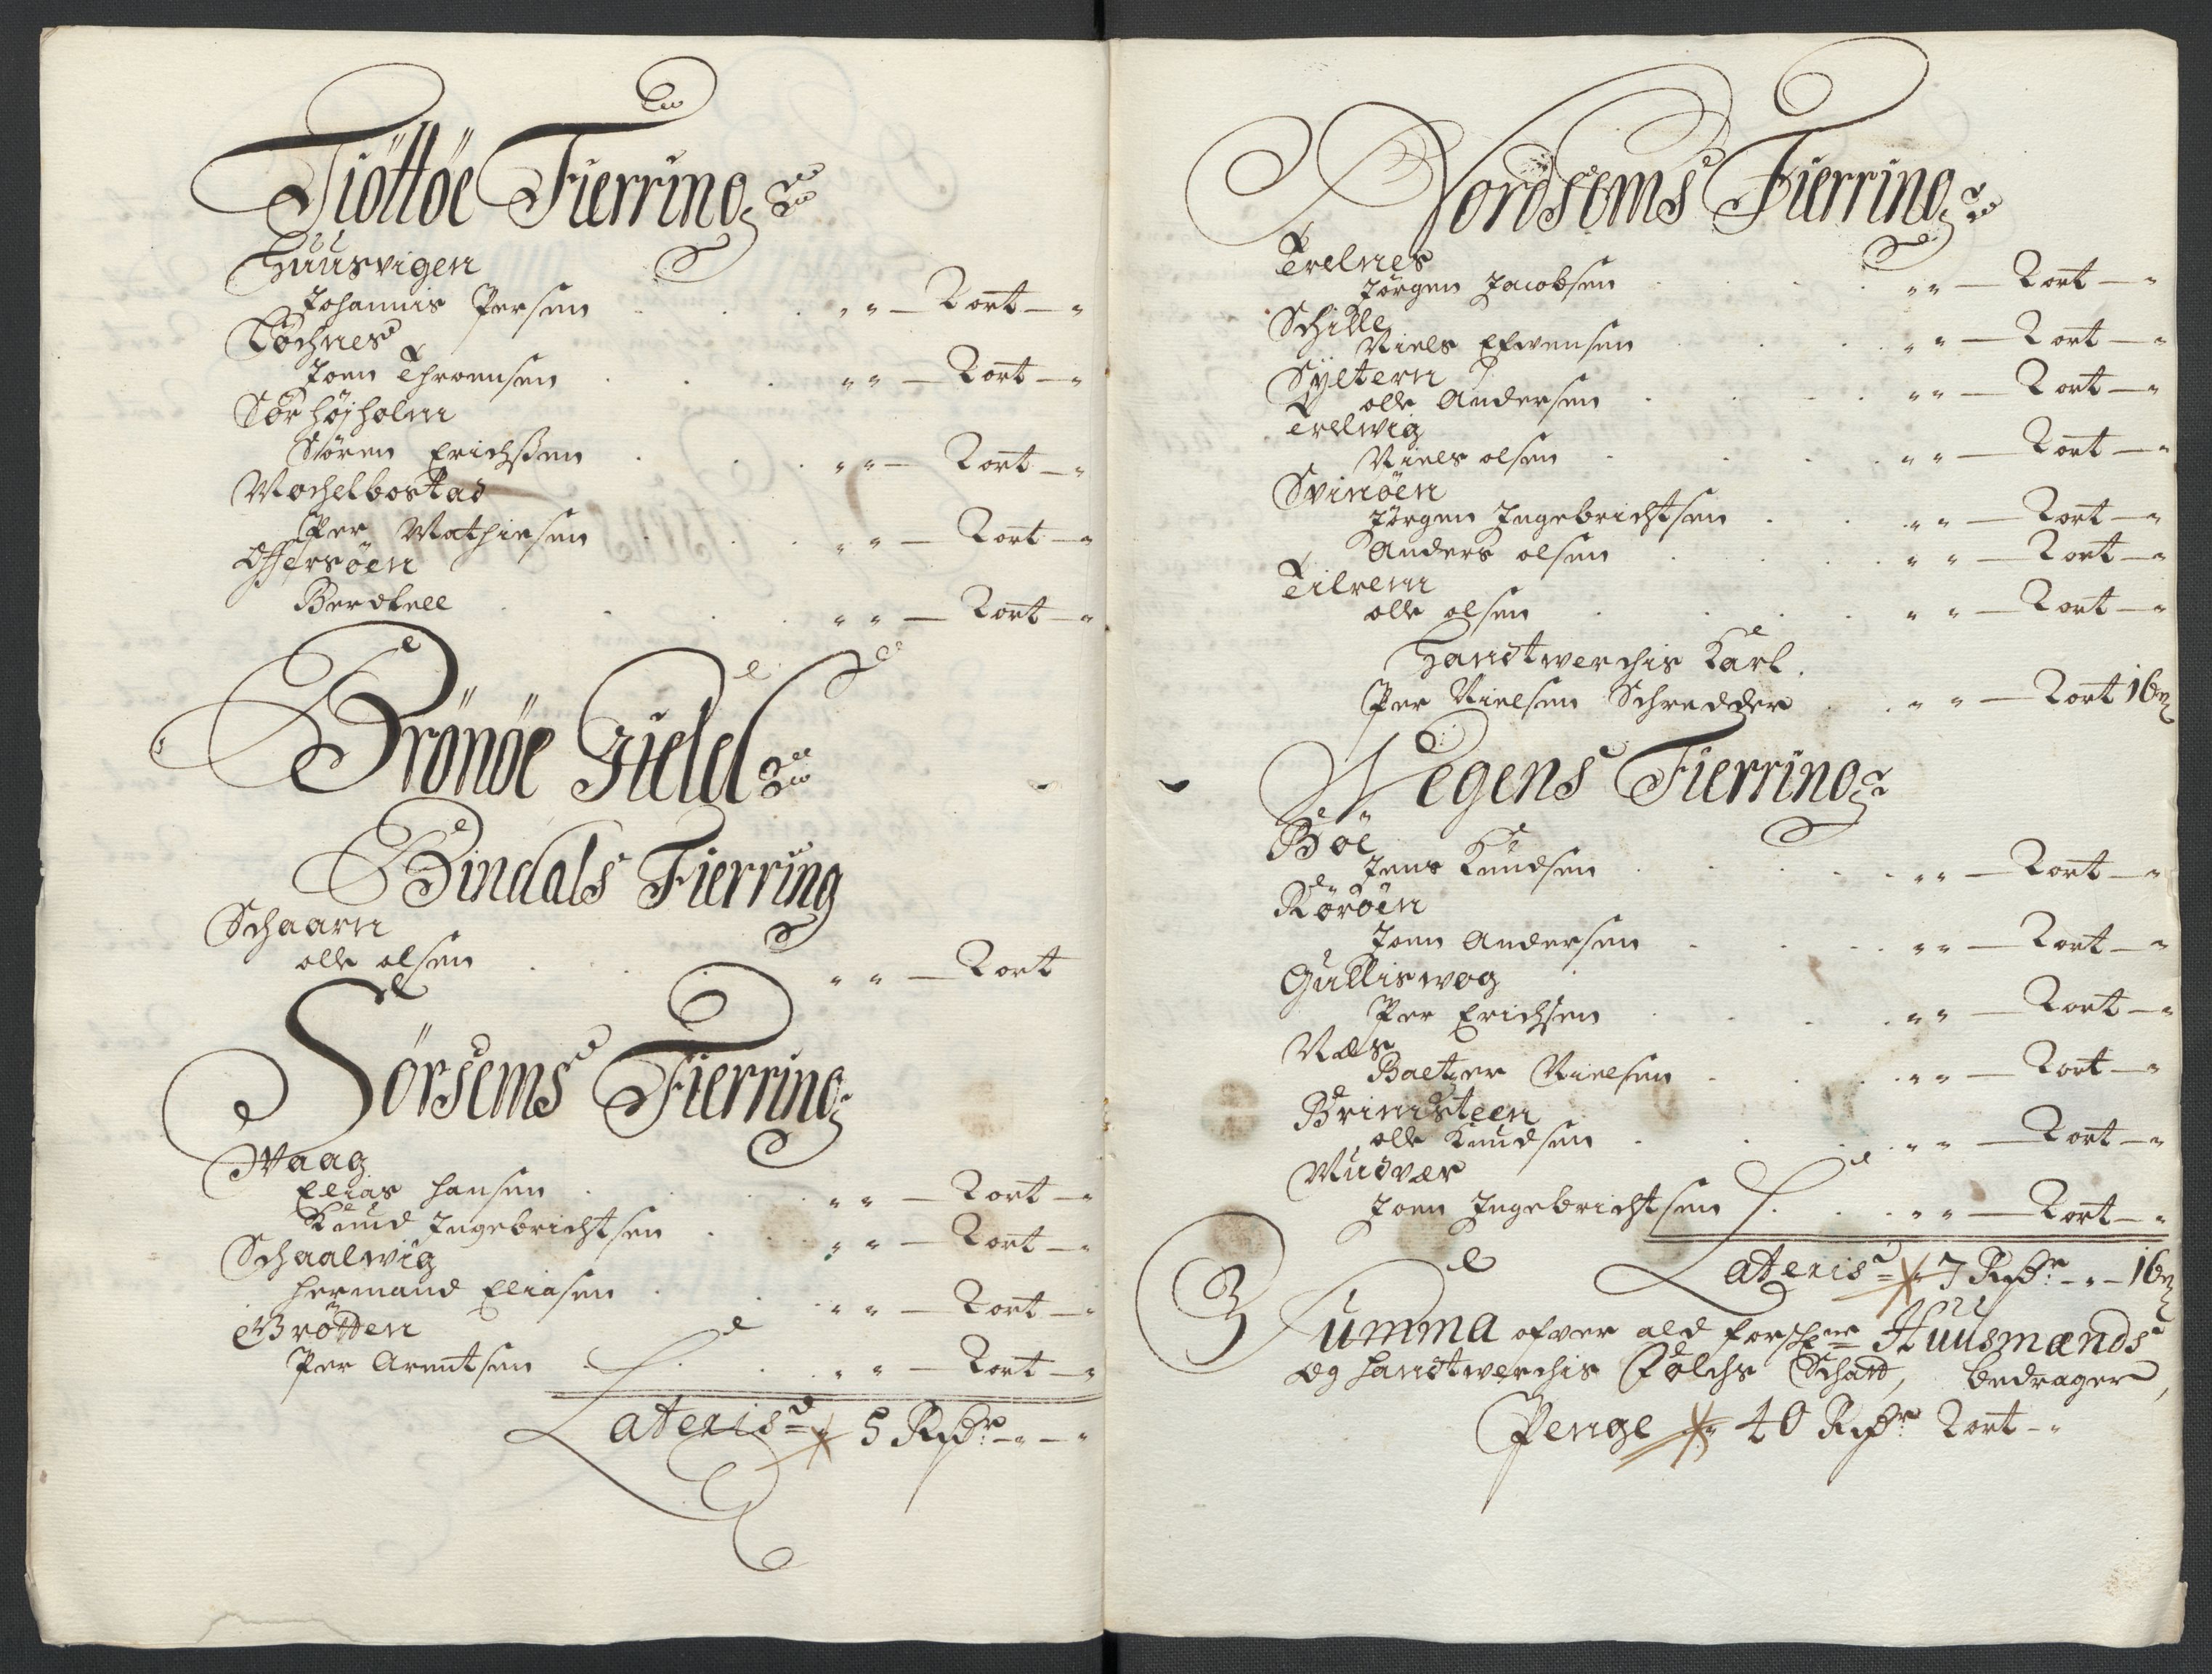 Tiöttöe Fierring
Huusvigen
Johannis Persen " " — 2 ort — "
Töchnes
Joen Throensen " " — 2 ort — "
Sör höjholm
Sören Erichssen " " — 2 ort — "
Mochelbostad
Per Mathiesen " " — 2 ort — "
Offersöen
Berdtell " " — 2 ort — "
Brönöe Gield
Bindals Fierring
Schaarn
olle olsen " " — 2 ort
Sörsems Fierring
Waag
Elias hansen " " — 2 ort — "
Knud Ingebrichtsen " " — 2 ort — "
Schaalwiig
Hermand Eliasen " " — 2 ort — "
Brötten
Per Arentsen " " — 2 ort — "
Lateris 5 Rdr — " — "
Nordsems Fierring
Trelnes
Jörgen Jacobsen " " — 2 ort — "
Schille
Niels Efwensen " " — 2 ort — "
Syltern
olle Andersen " " — 2 ort — "
Trelwig
Niels olsen " " — 2 ort — "
Svinöen
Jörgen Ingebrichtsen " " — 2 ort — "
Anders olsen " " — 2 ort — "
Tilrem
olle olsen " " — 2 ort — "
Handtwerchis Karl.
Per Nielsen Schredder " " — 2 ort 16 s
Wegens Fierring
Böe
Jens Knudsen " " — 2 ort — "
Röröen
Joen Andersen " " — 2 ort — "
Gulliswog
Per Erichsen " " — 2 ort — "
Næs
Baltzer Nielsen " " — 2 ort — "
Brimsteen
olle Knudsen " " — 2 ort — "
Mudvær
Joen Ingebrichtsen " " — 2 ort — "
Lateris 7 Rdr — " — 16 s
Summa ofver ald forschrne Huusmænds
og handtwerchis Folchs Schatt, bedrager,
Penge 40 Rdr 2 ort — "